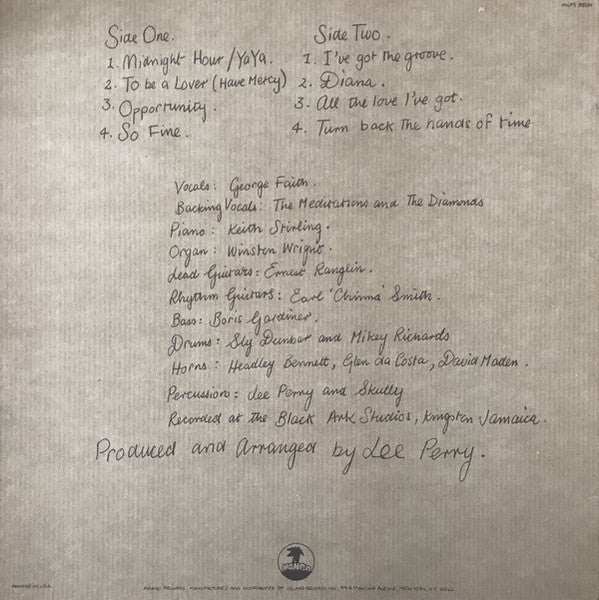 MLPS 9504
Side One.
1. Midnight Hour / YaYa.
2. To be a Lover (Have Mercy)
3. Opportunity.
4. So Fine.
Side Two.
1. I've got the groove.
2. Diana.
3. All the love I've got.
4. Turn back the hands of time
Vocals: George Faith.
Backing Vocals: The Meditations and The Diamonds
Piano: Keith Stirling.
Organ: Winston Wright.
Lead Guitars: Ernest Ranglin.
Rhythm Guitars: Earl 'Chinna' Smith.
Bass: Boris Gardiner.
Drums: Sly Dunbar and Mikey Richards
Horns: Headley Bennett, Glen da Costa, David Maden.
Percussion: Lee Perry and Skully
Recorded at the Black Ark Studios, Kingston Jamaica.
Produced and Arranged by Lee Perry.
MANGO
PRINTED IN U.S.A.
MANGO RECORDS MANUFACTURED AND DISTRIBUTED BY ISLAND RECORDS INC. 444 MADISON AVENUE, NEW YORK, N.Y. 10022